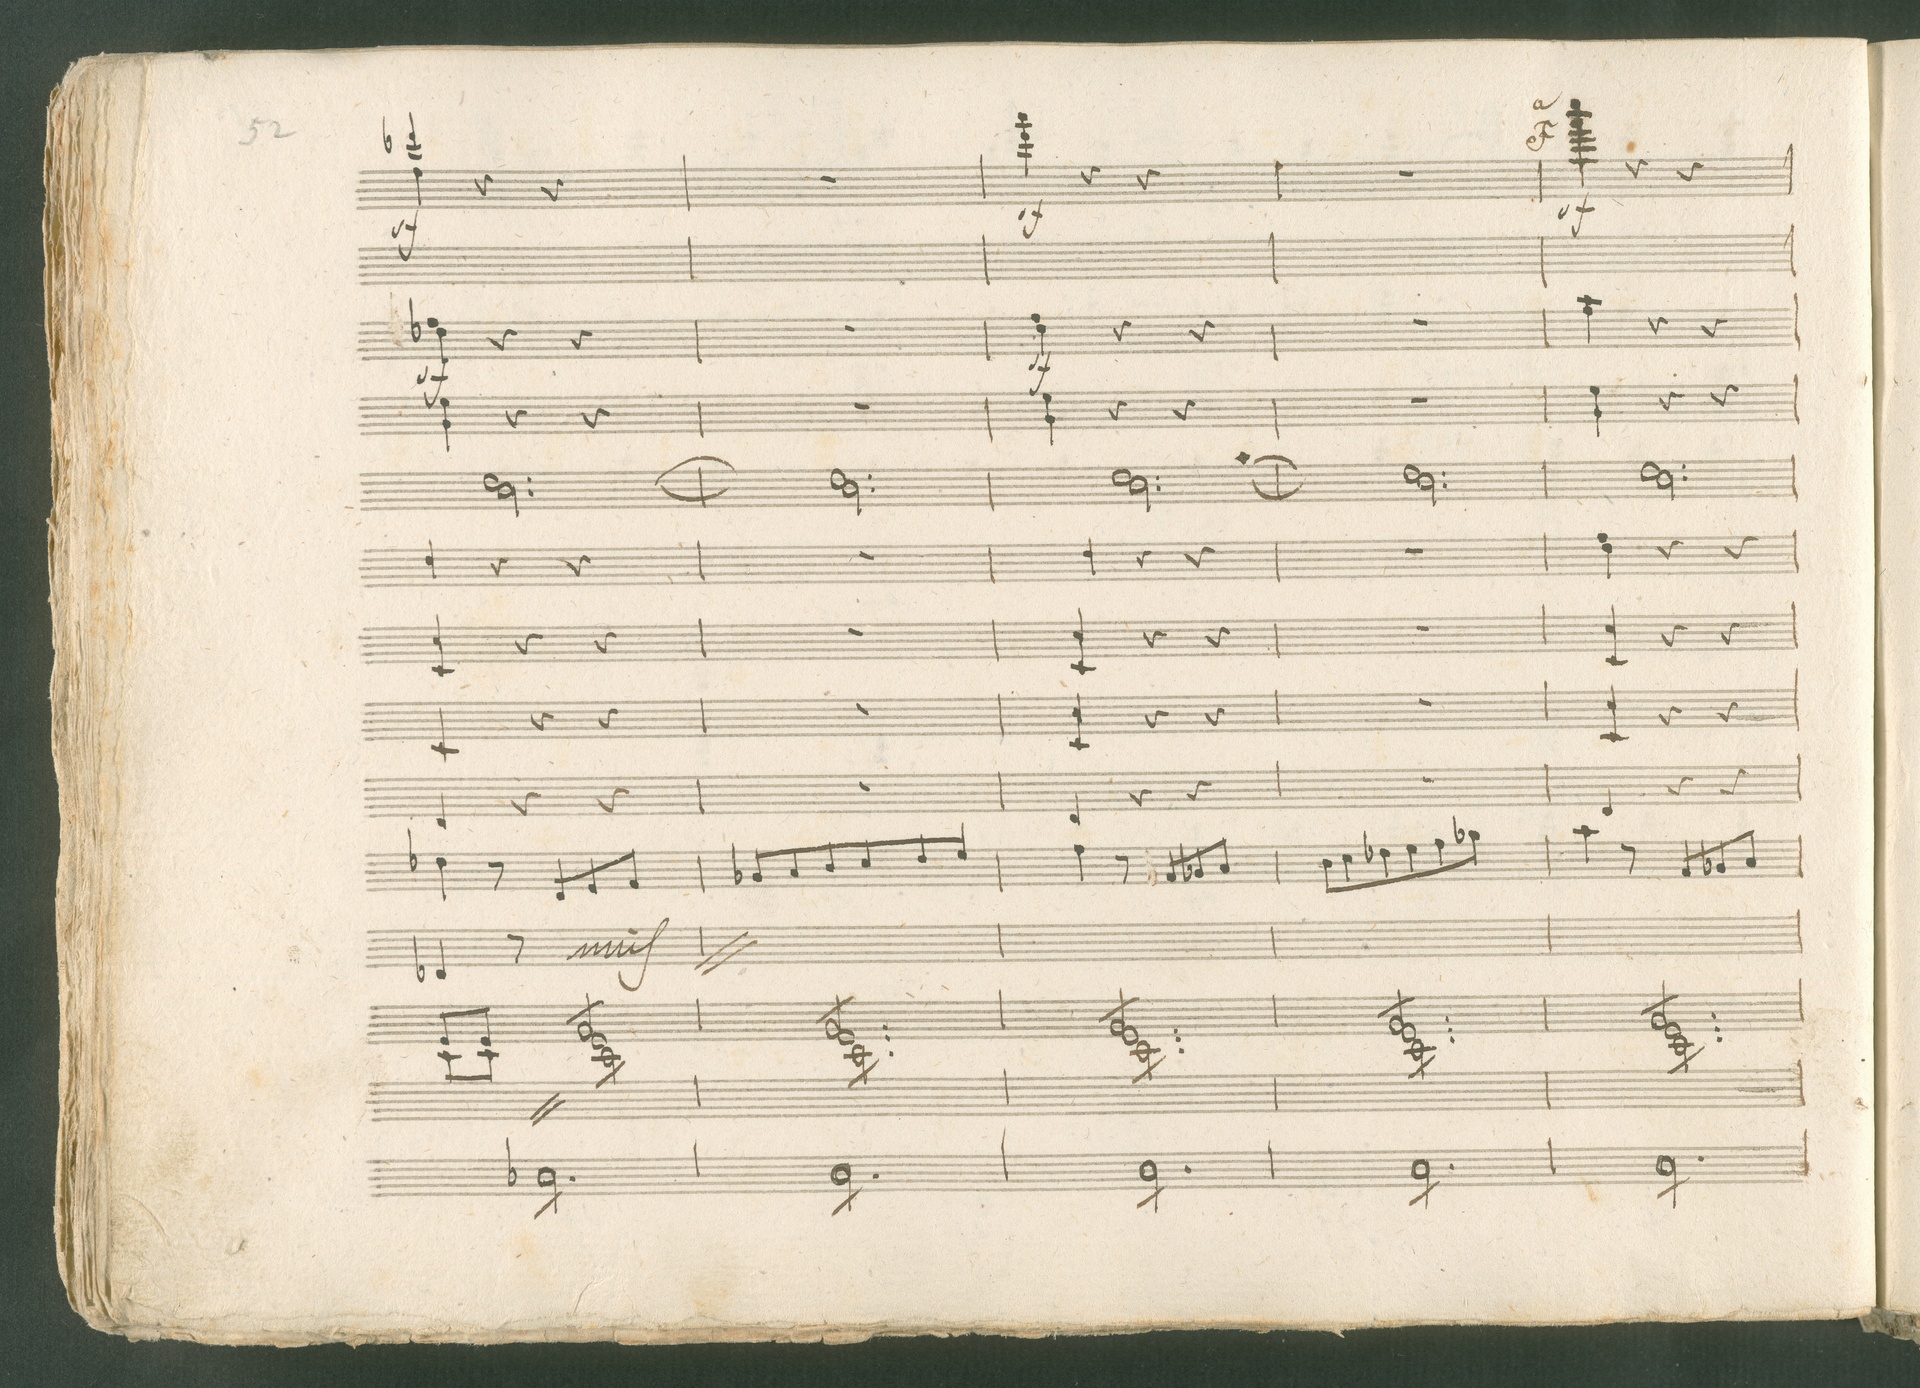 52
a
F
sf sf sf
sf sf
unis